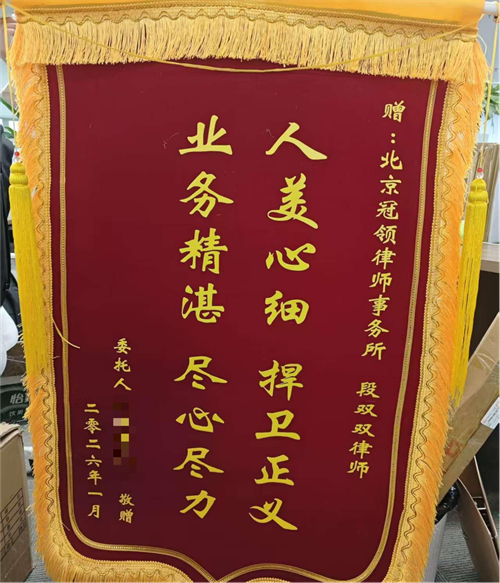 赠：北京冠领律师事务所 段双双律师
人美心细 捍卫正义
业务精湛 尽心尽力
委托人 敬赠
二零二六年一月